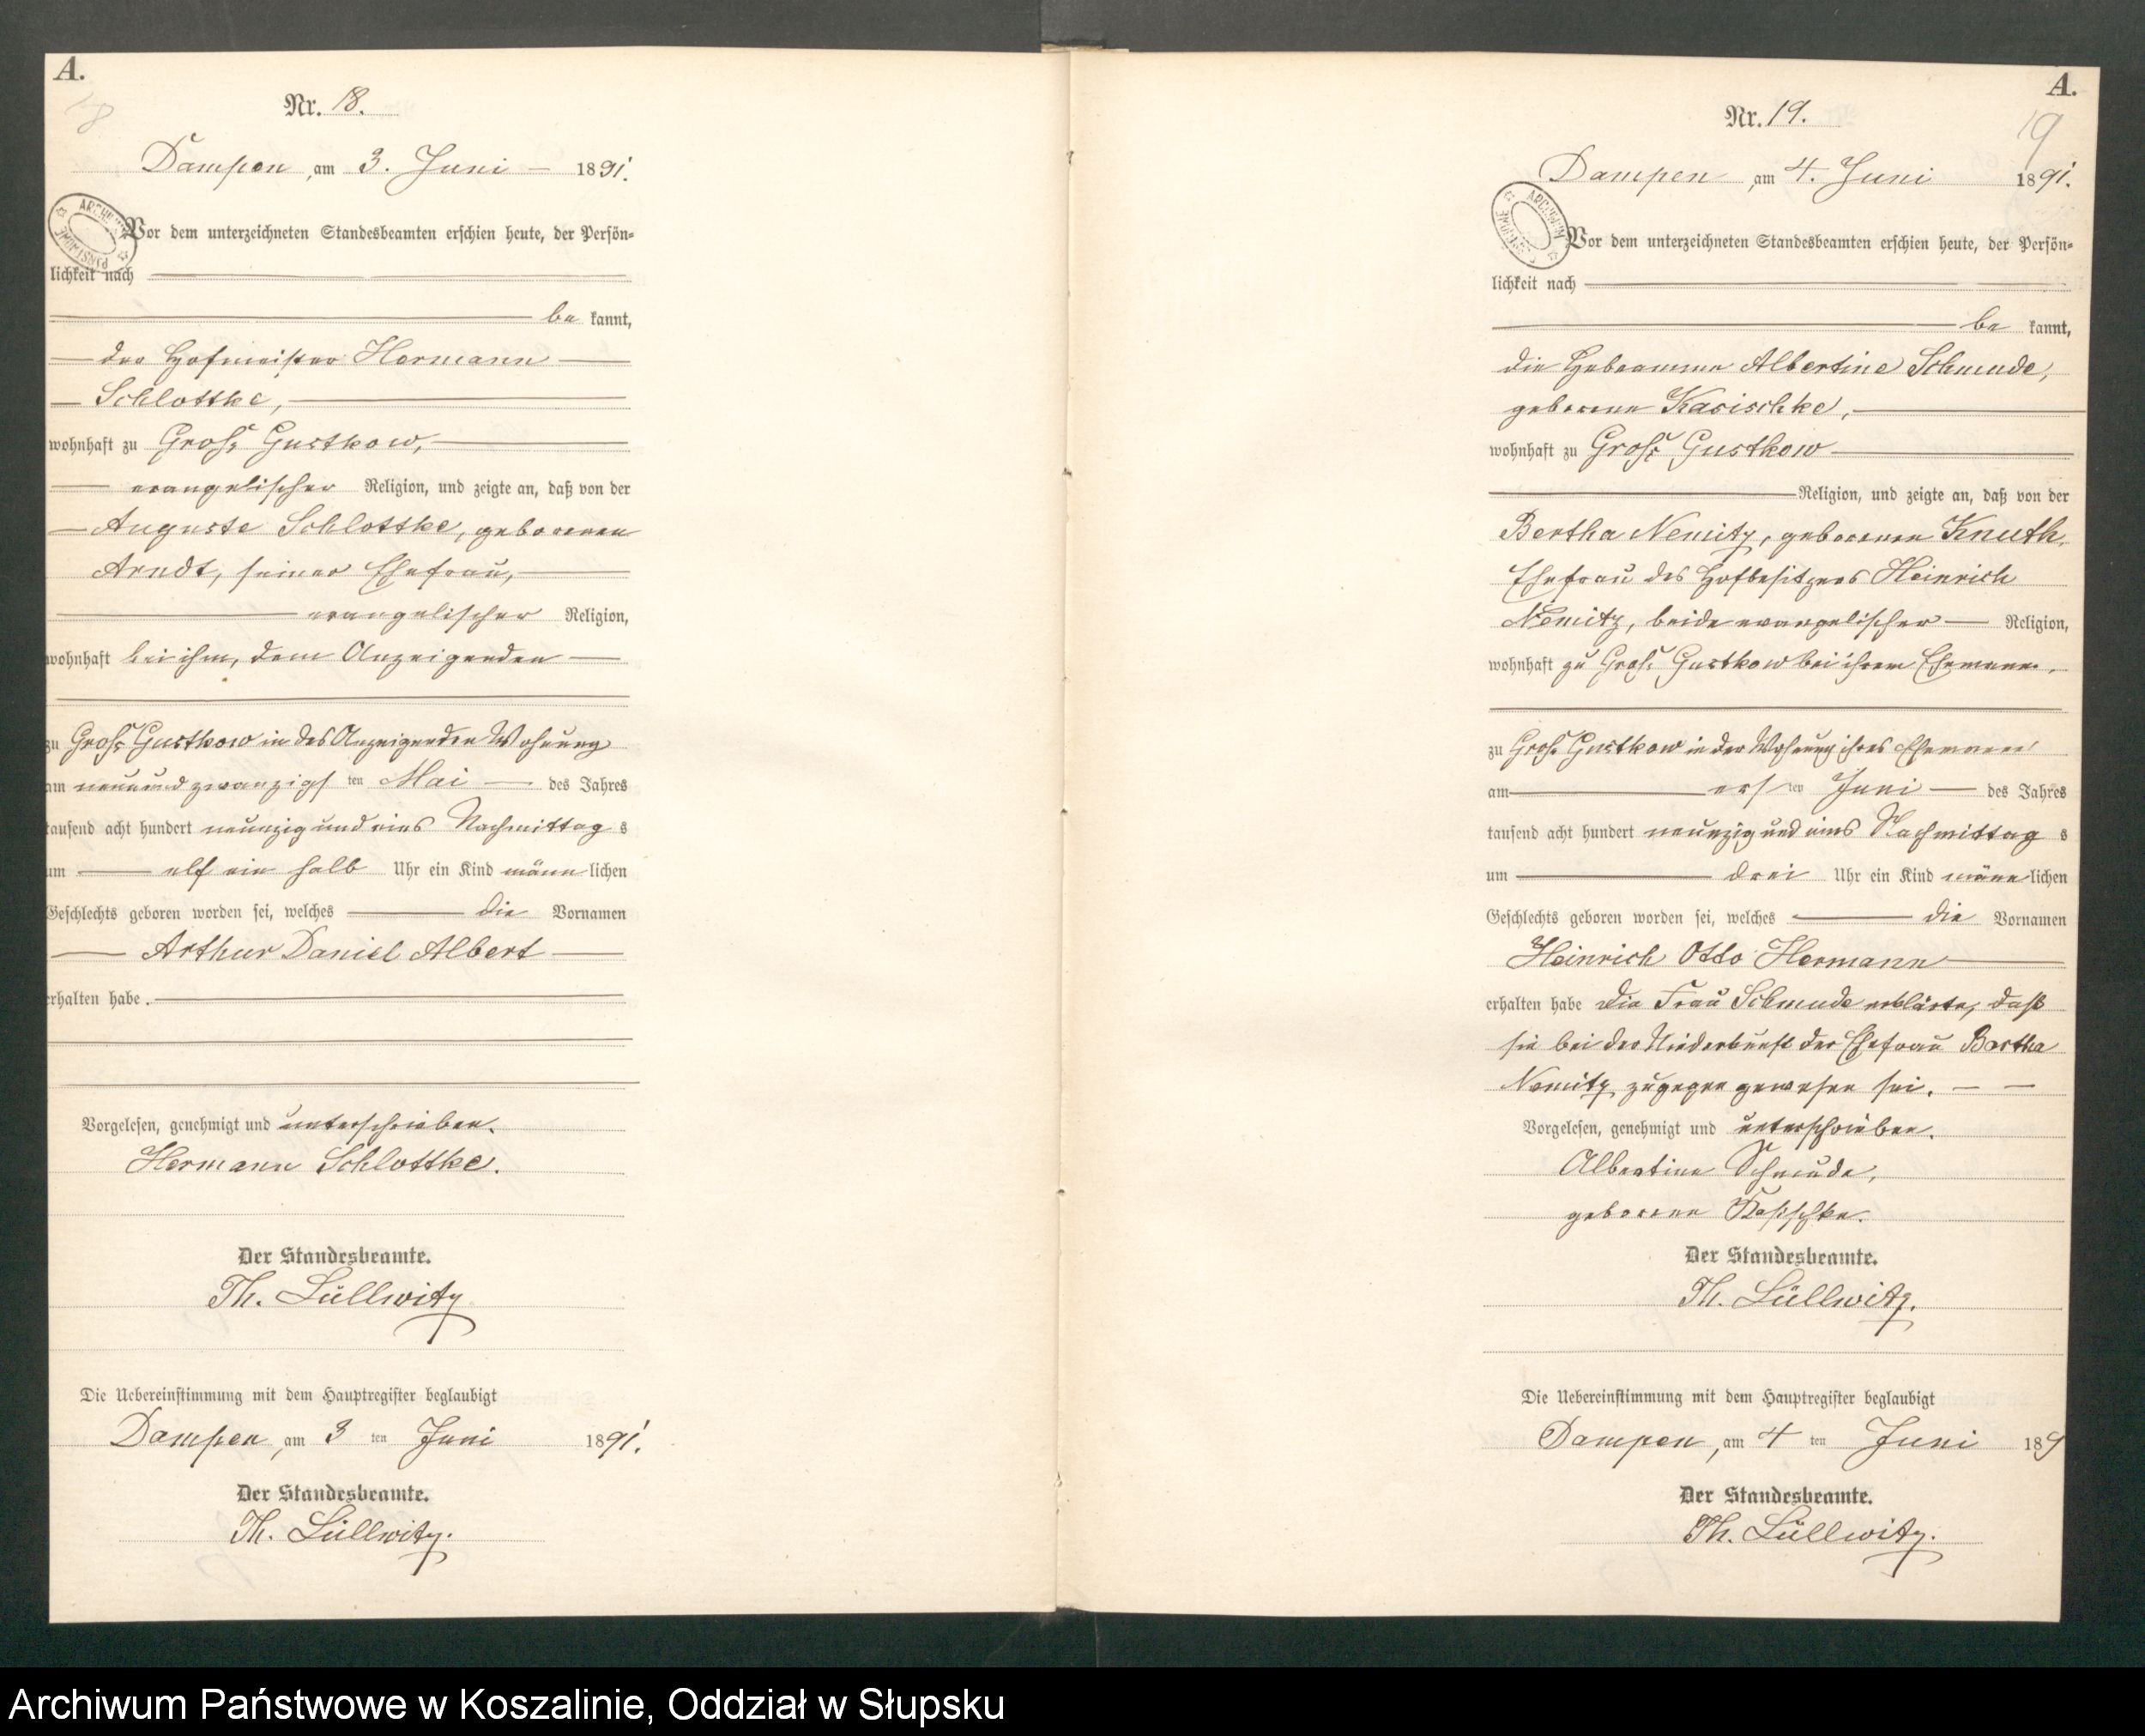 A.
18
Nr. 18.
Dampen, am 3. Juni 1891.
Vor dem unterzeichneten Standesbeamten erschien heute, der Persön-
lichkeit nach
be kannt,
der Hofmeister Hermann
Schlottke,
wohnhaft zu Groß Gustkow,
evangelischer Religion, und zeigte an, daß von der
Auguste Schlottke, geborenen
Arndt, seiner Ehefrau,
evangelischer Religion,
wohnhaft bei ihm, dem Anzeigenden
zu Groß Gustkow in des Anzeigenden Wohnung
am neunundzwanzigsten Mai des Jahres
tausend acht hundert neunzig und eins Nachmittags
um elf ein halb Uhr ein Kind männlichen
Geschlechts geboren worden sei, welches die Vornamen
Arthur Daniel Albert
erhalten habe.
Vorgelesen, genehmigt und unterschrieben.
Hermann Schlottke.
Der Standesbeamte.
Th. Lüllwitz
Die Uebereinstimmung mit dem Hauptregister beglaubigt
Dampen, am 3 ten Juni 1891.
Der Standesbeamte.
Th. Lüllwitz.
A.
19
Nr. 19.
Dampen, am 4. Juni 1891.
ARCHIWUM
Vor dem unterzeichneten Standesbeamten erschien heute, der Persön-
lichkeit nach
be kannt,
die Hebamme Albertine Schmude,
geborene Kasischke,
wohnhaft zu Groß Gustkow
Religion, und zeigte an, daß von der
Bertha Nemitz, geborenen Knuth,
Ehefrau des Hofbesitzers Heinrich
Nemitz, beide evangelischer Religion,
wohnhaft zu Groß Gustkow bei ihrem Ehemann,
zu Groß Gustkow in der Wohnung ihres Ehemann
am ersten Juni des Jahres
tausend acht hundert neunzig und eins Nachmittags
um drei Uhr ein Kind männlichen
Geschlechts geboren worden sei, welches die Vornamen
Heinrich Otto Hermann
erhalten habe Die Frau Schmude erklärte, daß
sie bei der Niederkunft der Ehefrau Bertha
Nemitz zugegen gewesen sei.
Vorgelesen, genehmigt und unterschrieben.
Albertine Schmude,
geborene Kasischke.
Der Standesbeamte.
Th. Lüllwitz.
Die Uebereinstimmung mit dem Hauptregister beglaubigt
Dampen, am 4 ten Juni 189
Der Standesbeamte.
Th. Lüllwitz.
Archiwum Państwowe w Koszalinie, Oddział w Słupsku